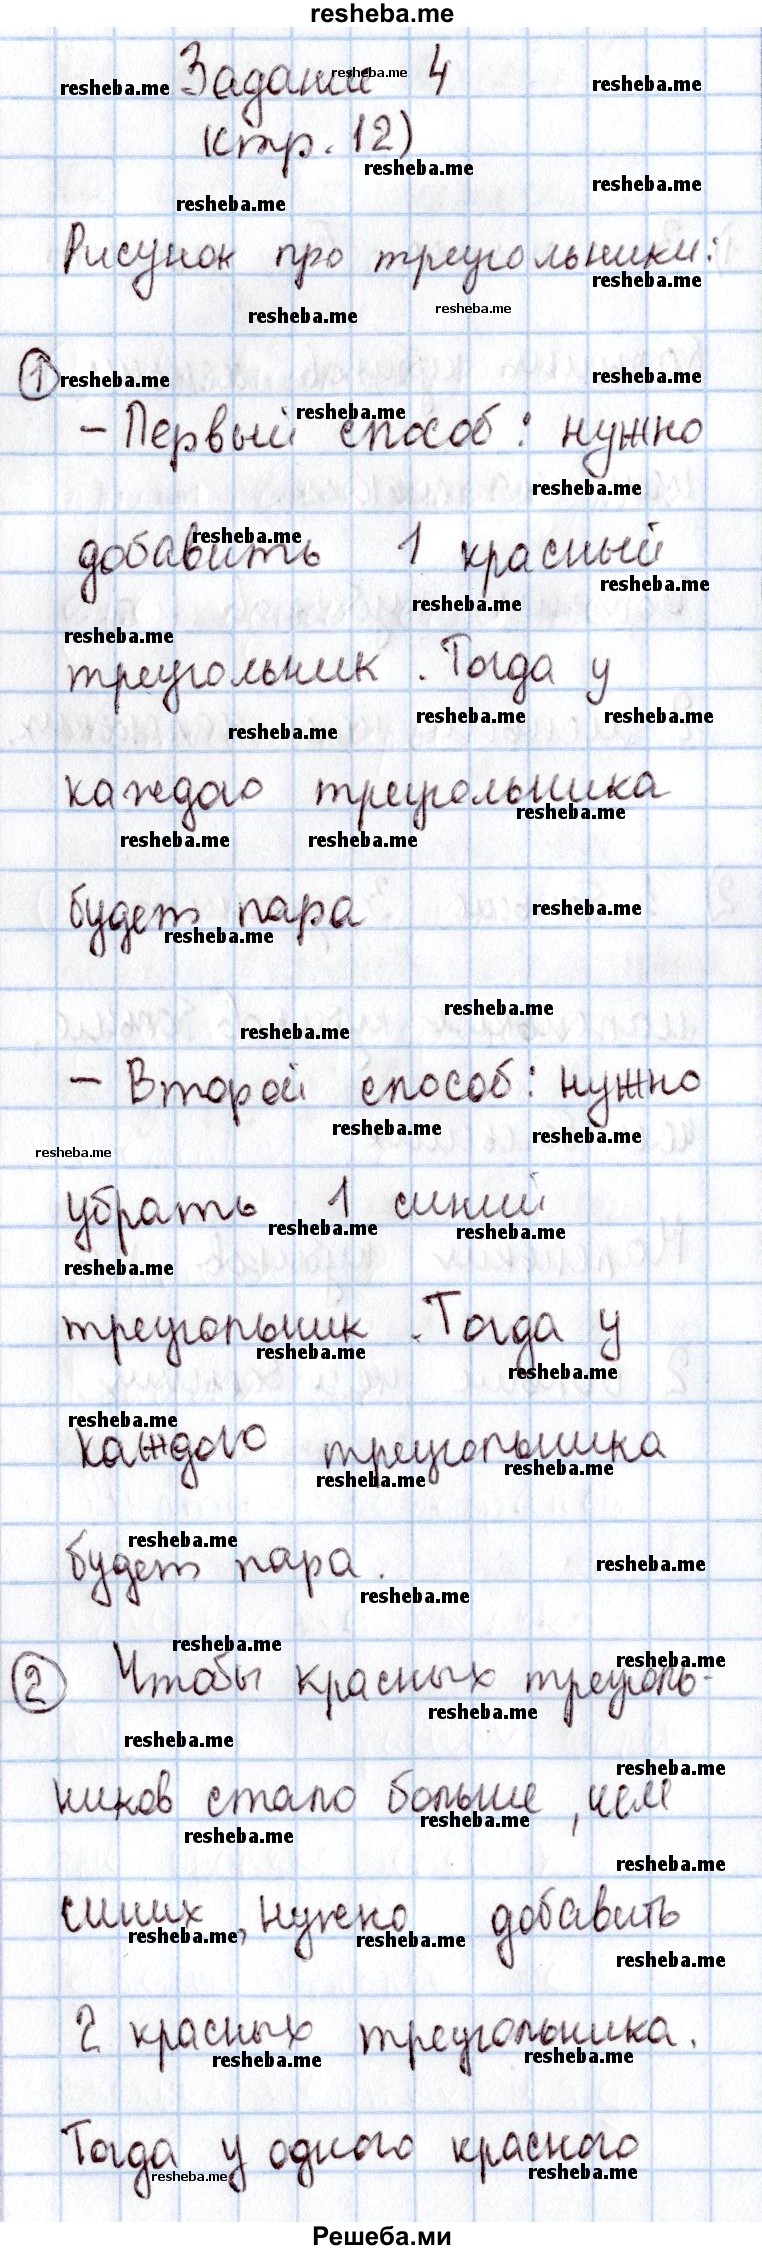 resheba.me
Задание 4
(стр. 12)
Рисунок про треугольники:
1
- Первый способ: нужно
добавить 1 красный
треугольник. Тогда у
каждого треугольника
будет пара
- Второй способ: нужно
убрать 1 синий
треугольник. Тогда у
каждого треугольника
будет пара.
2 Чтобы красных треуголь-
ников стало больше, чем
синих, нужно добавить
2 красных треугольника.
Тогда у одного красного
Решеба.ми